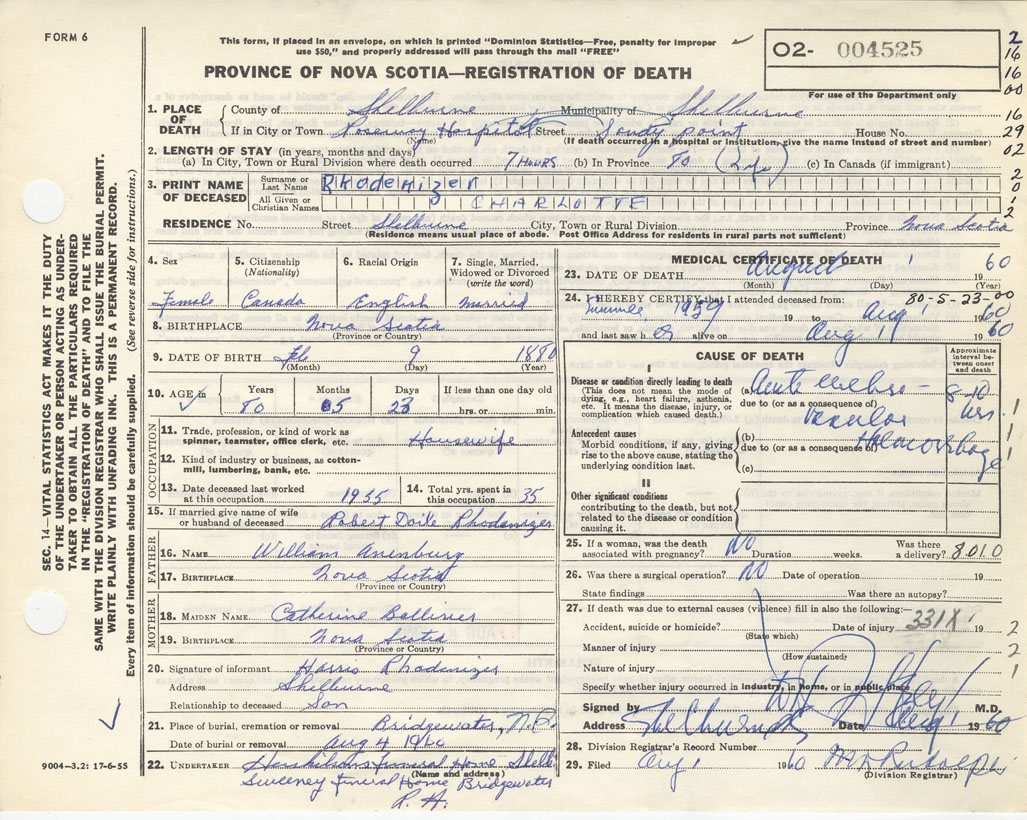 FORM 6
This form, if placed in an envelope, on which is printed "Dominion Statistics—Free, penalty for improper
use $50," and properly addressed will pass through the mail "FREE"
O2- 004525
For use of the Department only
PROVINCE OF NOVA SCOTIA—REGISTRATION OF DEATH
2
16
16
00
16
29
02
2
0
1
2
1. PLACE OF DEATH County of Shelburne Municipality of Shelburne
If in City or Town Roseway Hospital Street Sandy point House No.
(Name) (If death occurred in a hospital or institution, give the name instead of street and number)
2. LENGTH OF STAY (in years, months and days)
(a) In City, Town or Rural Division where death occurred 7 HOURS (b) In Province 80 (Life) (c) In Canada (if immigrant)
3. PRINT NAME OF DECEASED Surname or Last Name Rhodenizer
All Given or Christian Names CHARLOTTE
RESIDENCE No. Street Shelburne City, Town or Rural Division Province Nova Scotia
(Residence means usual place of abode. Post Office Address for residents in rural parts not sufficient)
4. Sex 5. Citizenship (Nationality) 6. Racial Origin 7. Single, Married, Widowed or Divorced (write the word)
Female Canada English Married
8. BIRTHPLACE Nova Scotia
(Province or Country)
9. DATE OF BIRTH Feb 9 1880
(Month) (Day) (Year)
10. AGE in Years Months Days If less than one day old
80 05 23 hrs. or min.
OCCUPATION
11. Trade, profession, or kind of work as spinner, teamster, office clerk, etc. Housewife
12. Kind of industry or business, as cotton-mill, lumbering, bank, etc.
13. Date deceased last worked at this occupation 1955 14. Total yrs. spent in this occupation 35
15. If married give name of wife or husband of deceased Robert Doile Rhodenizer
FATHER
16. NAME William
17. BIRTHPLACE Nova Scotia
(Province or Country)
MOTHER
18. MAIDEN NAME Catherine
19. BIRTHPLACE Nova Scotia
(Province or Country)
20. Signature of informant Harris Rhodenizer
Address Shelburne
Relationship to deceased Son
21. Place of burial, cremation or removal Bridgewater, N.S.
Date of burial or removal Aug 4 1960
22. UNDERTAKER funeral Home Shelb
(Name and address)
Sweeney Funeral Home Bridgewater
MEDICAL CERTIFICATE OF DEATH
23. DATE OF DEATH August 1 1960
(Month) (Day) (Year)
80-5-23-00
24. I HEREBY CERTIFY that I attended deceased from:
1959 19 to Aug 1 1960
and last saw her alive on Aug 1 1960
CAUSE OF DEATH
Approximate interval between onset and death
I
Disease or condition directly leading to death
(This does not mean the mode of dying, e.g., heart failure, asthenia, etc. It means the disease, injury, or complication which caused death.)
(a) Acute cerebro-
8-10 hrs.
due to (or as a consequence of) vascular
Antecedent causes
Morbid conditions, if any, giving rise to the above cause, stating the underlying condition last.
(b) Haemorrhage
due to (or as a consequence of)
(c)
1
1
1
II
Other significant conditions
contributing to the death, but not related to the disease or condition causing it.
25. If a woman, was the death associated with pregnancy? NO Duration weeks. Was there a delivery? 8010
26. Was there a surgical operation? NO Date of operation 19
State findings Was there an autopsy?
27. If death was due to external causes (violence) fill in also the following:—
Accident, suicide or homicide? Date of injury 331X 19 2
(State which)
Manner of injury 2
(How sustained)
Nature of injury 1
Specify whether injury occurred in industry, in home, or in public place
Signed by M.D.
Address Shelburne Date Aug 1 1960
28. Division Registrar's Record Number
29. Filed Aug 1 1960
(Division Registrar)
SEC. 14—VITAL STATISTICS ACT MAKES IT THE DUTY
OF THE UNDERTAKER OR PERSON ACTING AS UNDER-
TAKER TO OBTAIN ALL THE PARTICULARS REQUIRED
IN THE "REGISTRATION OF DEATH" AND TO FILE THE
SAME WITH THE DIVISION REGISTRAR WHO SHALL ISSUE THE BURIAL PERMIT.
WRITE PLAINLY WITH UNFADING INK. THIS IS A PERMANENT RECORD.
Every item of information should be carefully supplied. (See reverse side for instructions.)
9004-3.2: 17-6-55